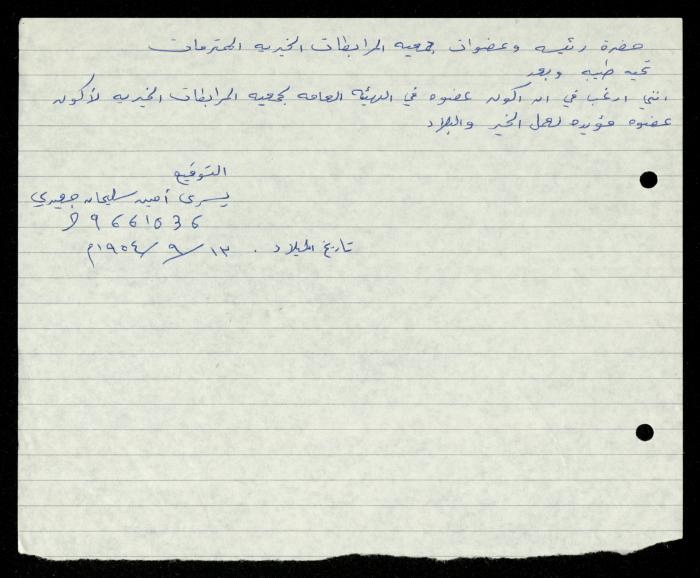 حضرة رئيسه وعضوات جمعيه المرابطات الخيريه المحترمات
تحيه طيبه وبعد
انني ارغب في ان اكون عضوه في الهيئه العامه لجمعيه المرابطات الخيريه لأكون
عضوه مؤيده لعمل الخير والبلاد
التوقيع
يسرى أمين سليمان جعيدي
9661036
تاريخ الميلاد . ١٣/٩/١٩٥٤م